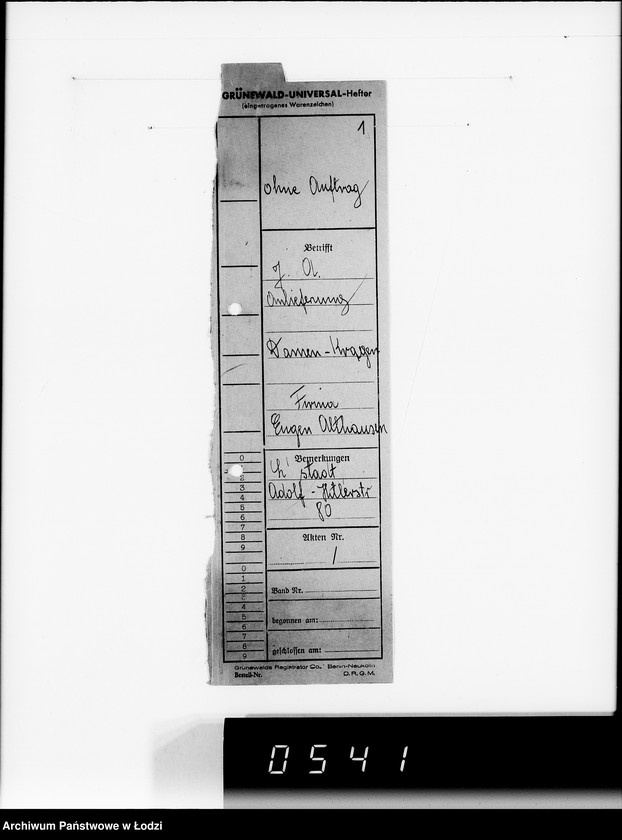 GRÜNEWALD-UNIVERSAL-Hefter
(eingetragenes Warenzeichen)
1
ohne Auftrag
Betrifft
J. A.
Anlieferung
Damen-Kragen
Firma
Eugen Althausen
0
Bemerkungen
L' stadt
2
3
Adolf-Hitlerstr
4
5
80
6
7
8
Akten Nr.
9
1
0
1
2
Band Nr.
3
4
5
begonnen am:
6
7
8
geschlossen am:
9
Grünewalds Registrator Co., Berlin-Neukölln
Bestell-Nr.
D. R. G. M.
0541
Archiwum Państwowe w Łodzi